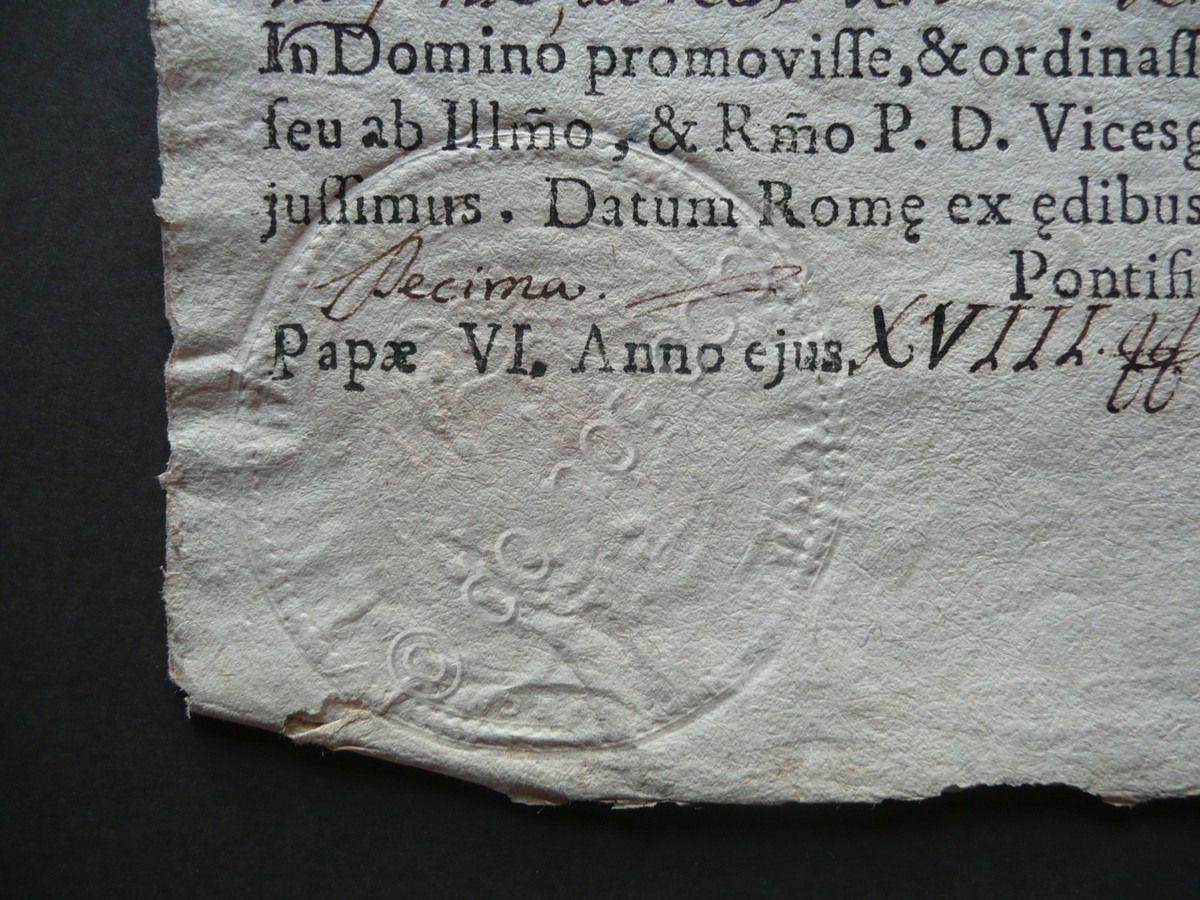 In Domino promoviſſe, & ordinaſſ
ſeu ab Illm̃o, & Rm̃o P. D. Vicesg
juſſimus. Datum Romę ex ędibus
Decima.
Pontifi
Papæ VI. Anno ejus. XVIII.